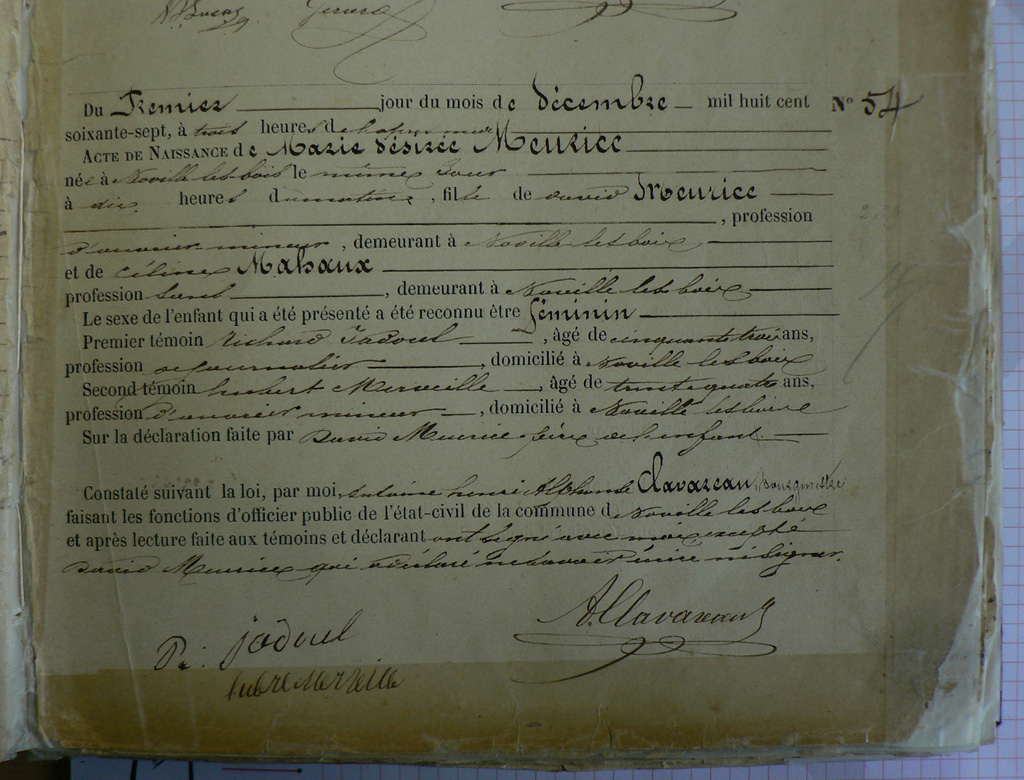 Du Premier jour du mois de décembre mil huit cent N° 54
soixante-sept, à trois heures de
ACTE DE NAISSANCE de Marie désirée Meurice
née à Noville les bois le même jour
à dix heures du matin, fille de david Meurice
, profession
d'ouvrier mineur, demeurant à Noville les bois
et de Céline Mahaux
profession , demeurant à Noville les bois
Le sexe de l'enfant qui a été présenté a été reconnu être féminin
Premier témoin Richard Jadoul, âgé de cinquante trois ans,
profession de journalier, domicilié à Noville les bois
Second témoin hubert Merveille, âgé de trente quatre ans,
profession d'ouvrier mineur, domicilié à Noville les bois
Sur la déclaration faite par David Meurice père de l'enfant.
Constaté suivant la loi, par moi, Antoine henri Alphonse Clavareau Bourgmestre
faisant les fonctions d'officier public de l'état-civil de la commune de Noville les bois
et après lecture faite aux témoins et déclarant ont signé avec moi excepté
David Meurice qui a déclaré ne savoir écrire ni signer.
AClavareau
jadoul